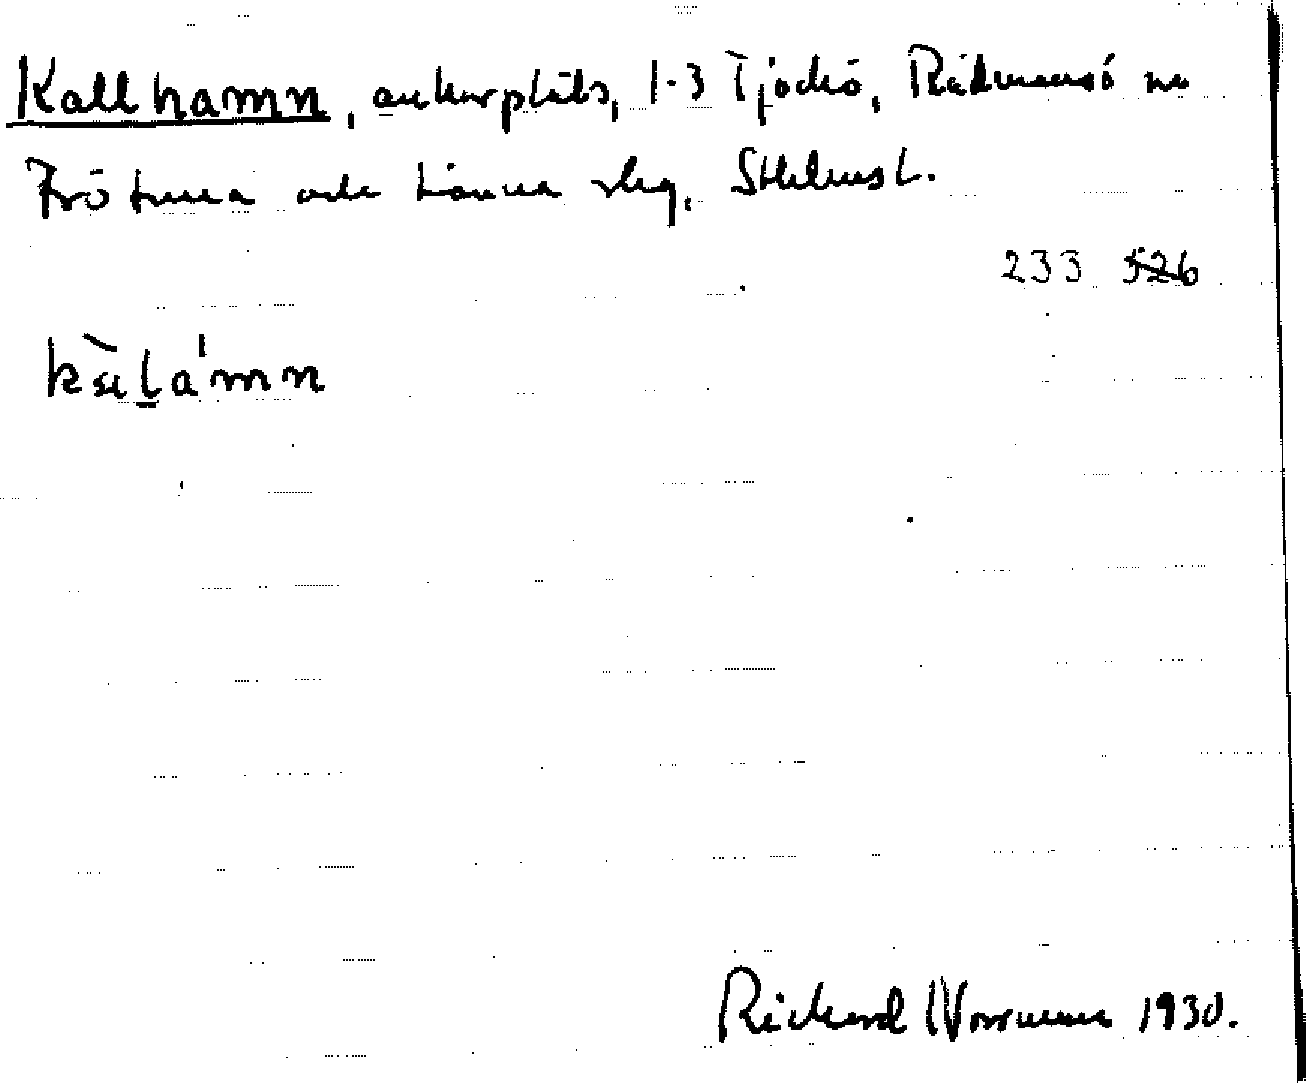 Kallhamn, ankarplats, 1-3 Tjockö, Rådmansö sn
Frötuna och Länna slg, Sthlms l.
233 526
Rickard Norrman 1930.